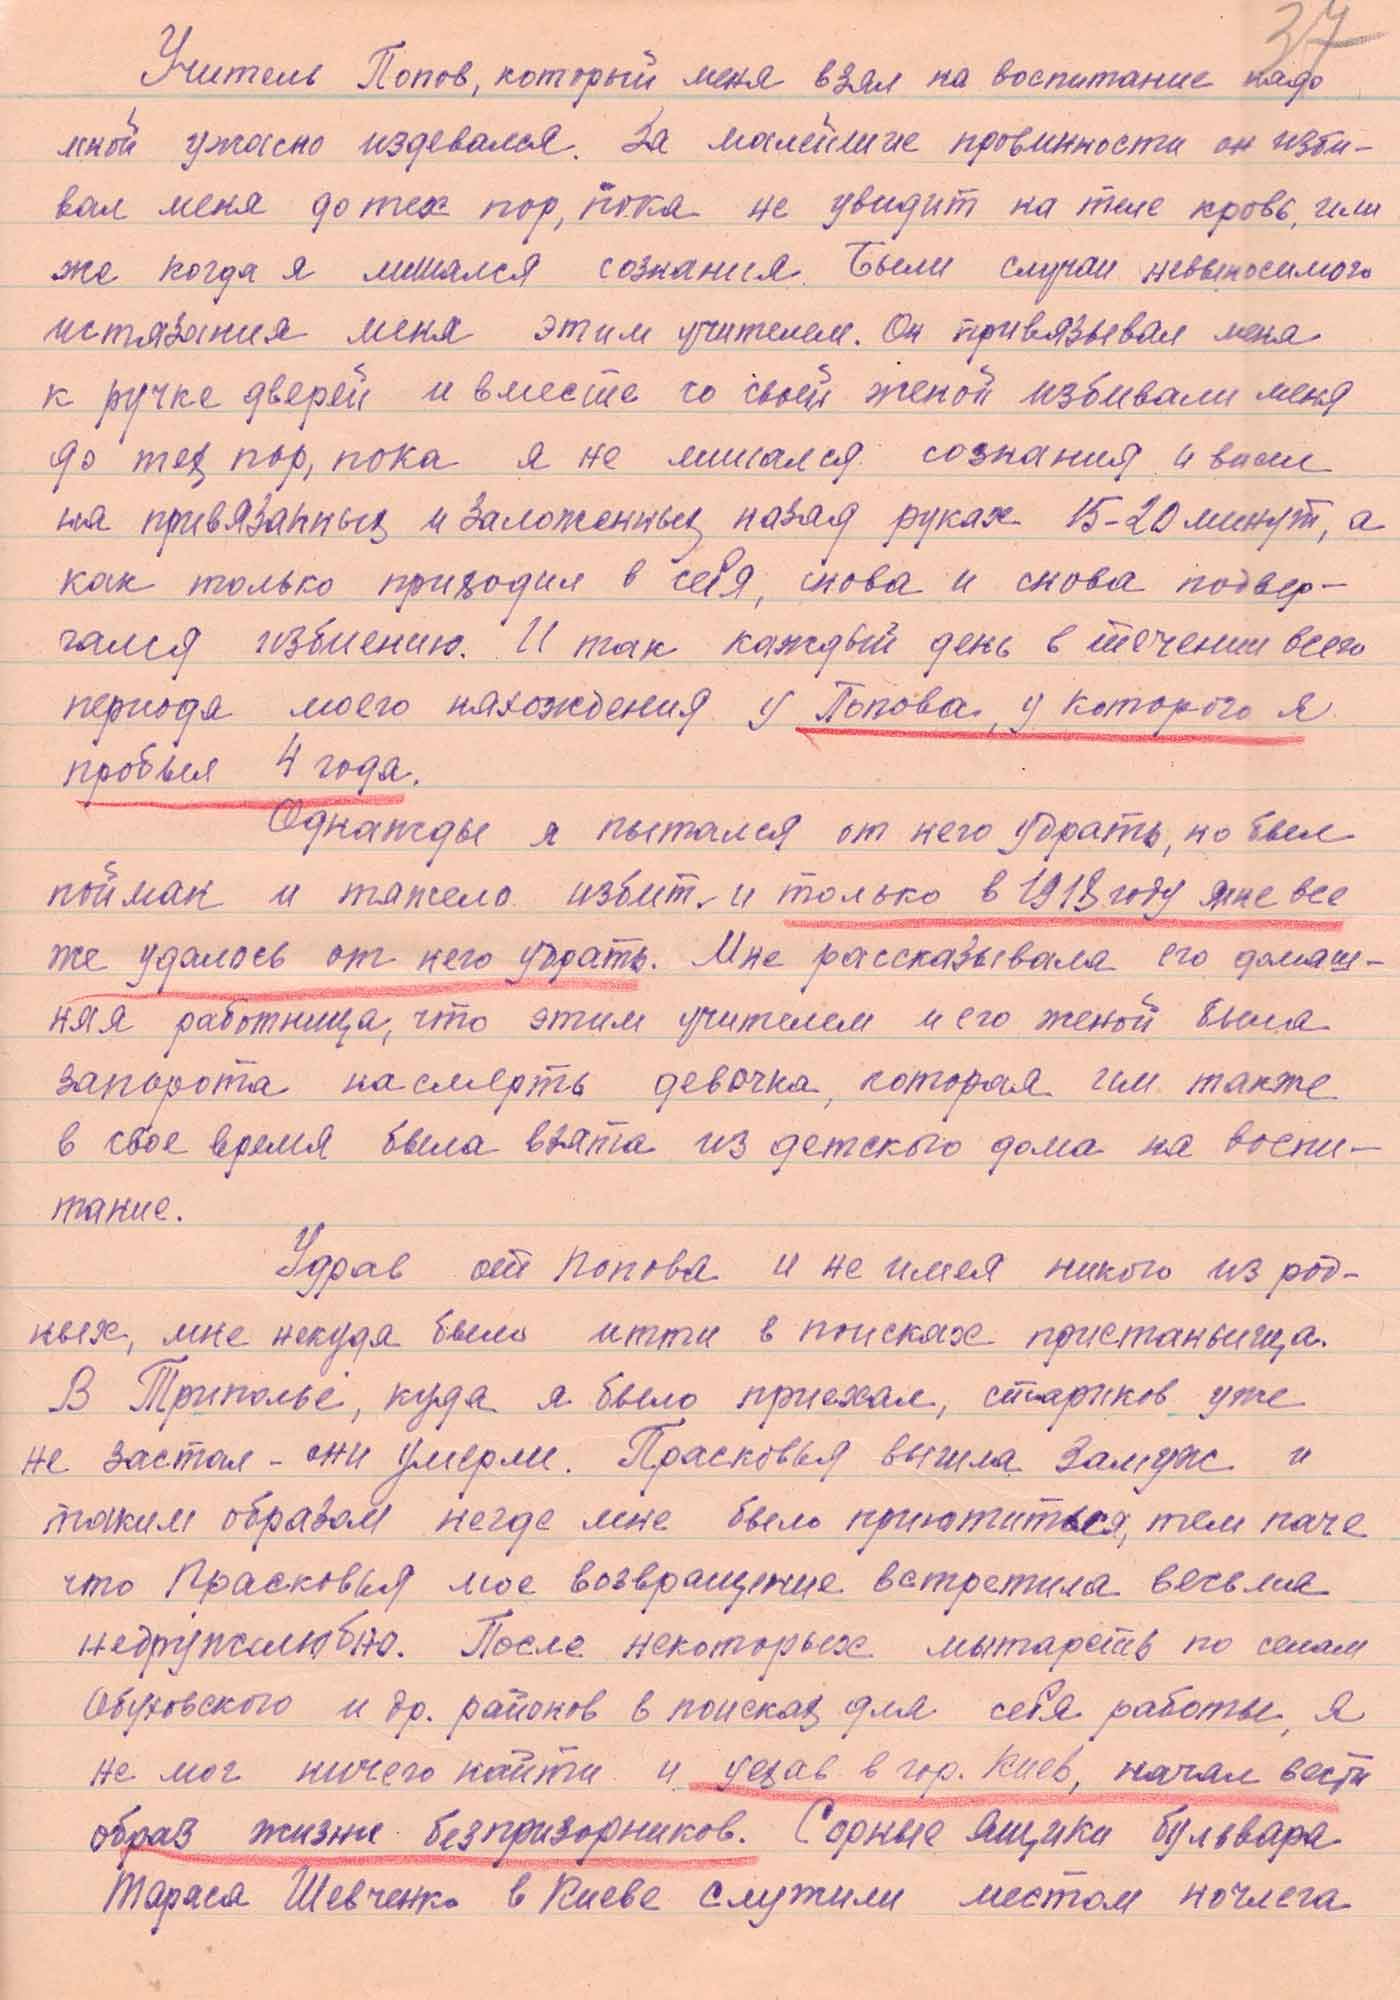 37
Учитель Попов, который меня взял на воспитание надо
мной ужасно издевался. За малейшие провинности он изби-
вал меня до тех пор, пока не увидит на теле кровь, или
же когда я лишался сознания. Были случаи невыносимого
истязания меня этим учителем. Он привязывал меня
к ручке дверей и вместе со своей женой избивали меня
до тех пор, пока я не лишался сознания и висел
на привязанных и заложенных назад руках 15-20 минут, а
как только приходил в себя, снова и снова подвер-
гался избиению. И так каждый день в течении всего
периода моего нахождения у Попова, у которого я
пробыл 4 года.
Однажды я пытался от него удрать, но был
пойман и тяжело избит, и только в 1918 году мне все
же удалось от него удрать. Мне рассказывала его домаш-
няя работница, что этим учителем и его женой была
запорота насмерть девочка, которая им также
в свое время была взята из детского дома на воспи-
тание.
Удрав от Попова и не имея никого из род-
ных, мне некуда было итти в поисках пристанища.
В Триполье, куда я было приехал, стариков уже
не застал - они умерли. Прасковья вышла замуж и
таким образом негде мне было приютиться, тем паче
что Прасковья мое возвращение встретила весьма
недружелюбно. После некоторых мытарств по селам
Обуховского и др. районов в поисках для себя работы, я
не мог ничего найти и уехав в гор. Киев, начал вести
образ жизни безпризорников. Сорные ящики бульвара
Тараса Шевченко в Киеве служили местом ночлега